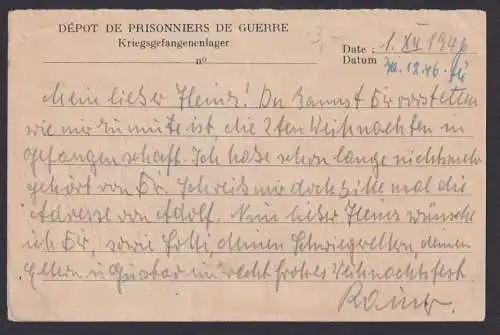 DÉPOT DE PRISONNIERS DE GUERRE
Kriegsgefangenenlager
nº
3,-
Date : 1. XII 1946
Datum 30.12.46.
Mein lieber Heinz! Du kannst Dir vorstellen
wie mir zumute ist, die 2ten Weihnachten in
gefangenschaft. Ich habe schon lange nichts mehr
gehört von Dir. Schreib mir doch bitte mal die
Adresse von Adolf. Nun lieber Heinz wünsche
ich Dir, sowie deinen Schwiegereltern, deinen
Eltern u Gustav ein recht frohes Weihnachtsfest